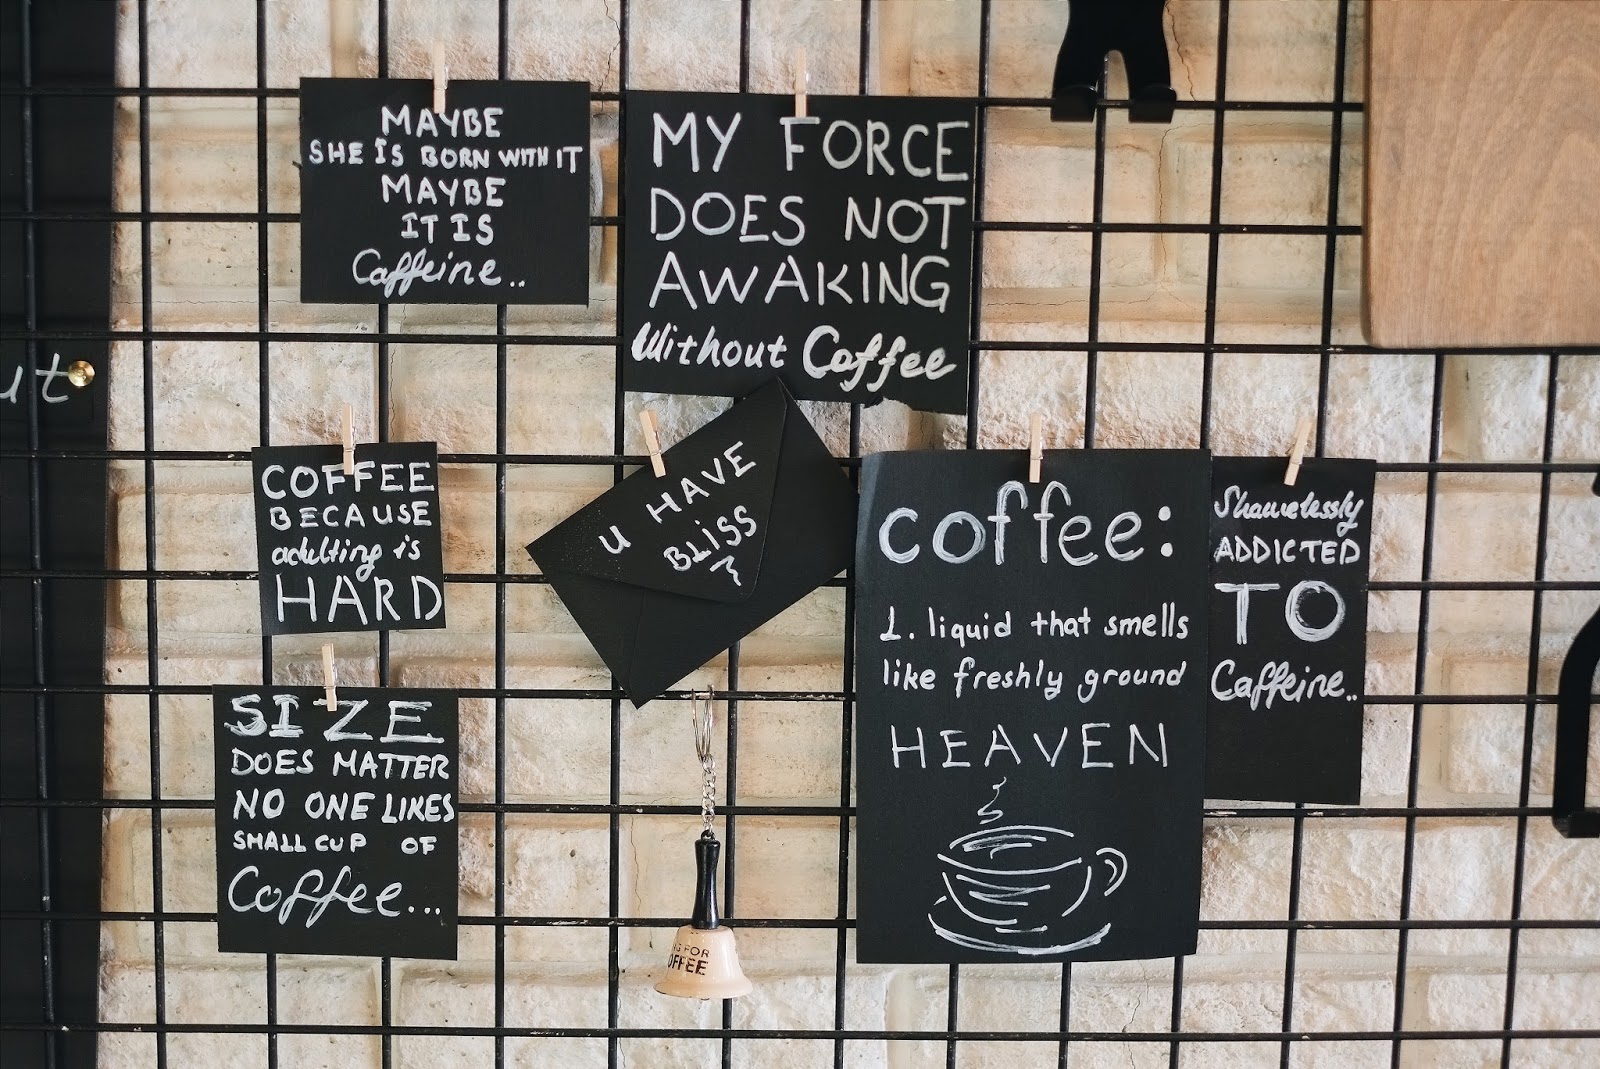 MAYBE
SHE IS BORN WITH IT
MAYBE
IT IS
Caffeine..
MY FORCE
DOES NOT
AWAKING
Without Coffee
ut
COFFEE
BECAUSE
adulting is
HARD
U HAVE
BLISS
coffee:
1. liquid that smells
like freshly ground
HEAVEN
Shamelessly
ADDICTED
TO
Caffeine..
SIZE
DOES MATTER
NO ONE LIKES
SMALL CUP OF
Coffee...
NG FOR
OFFEE